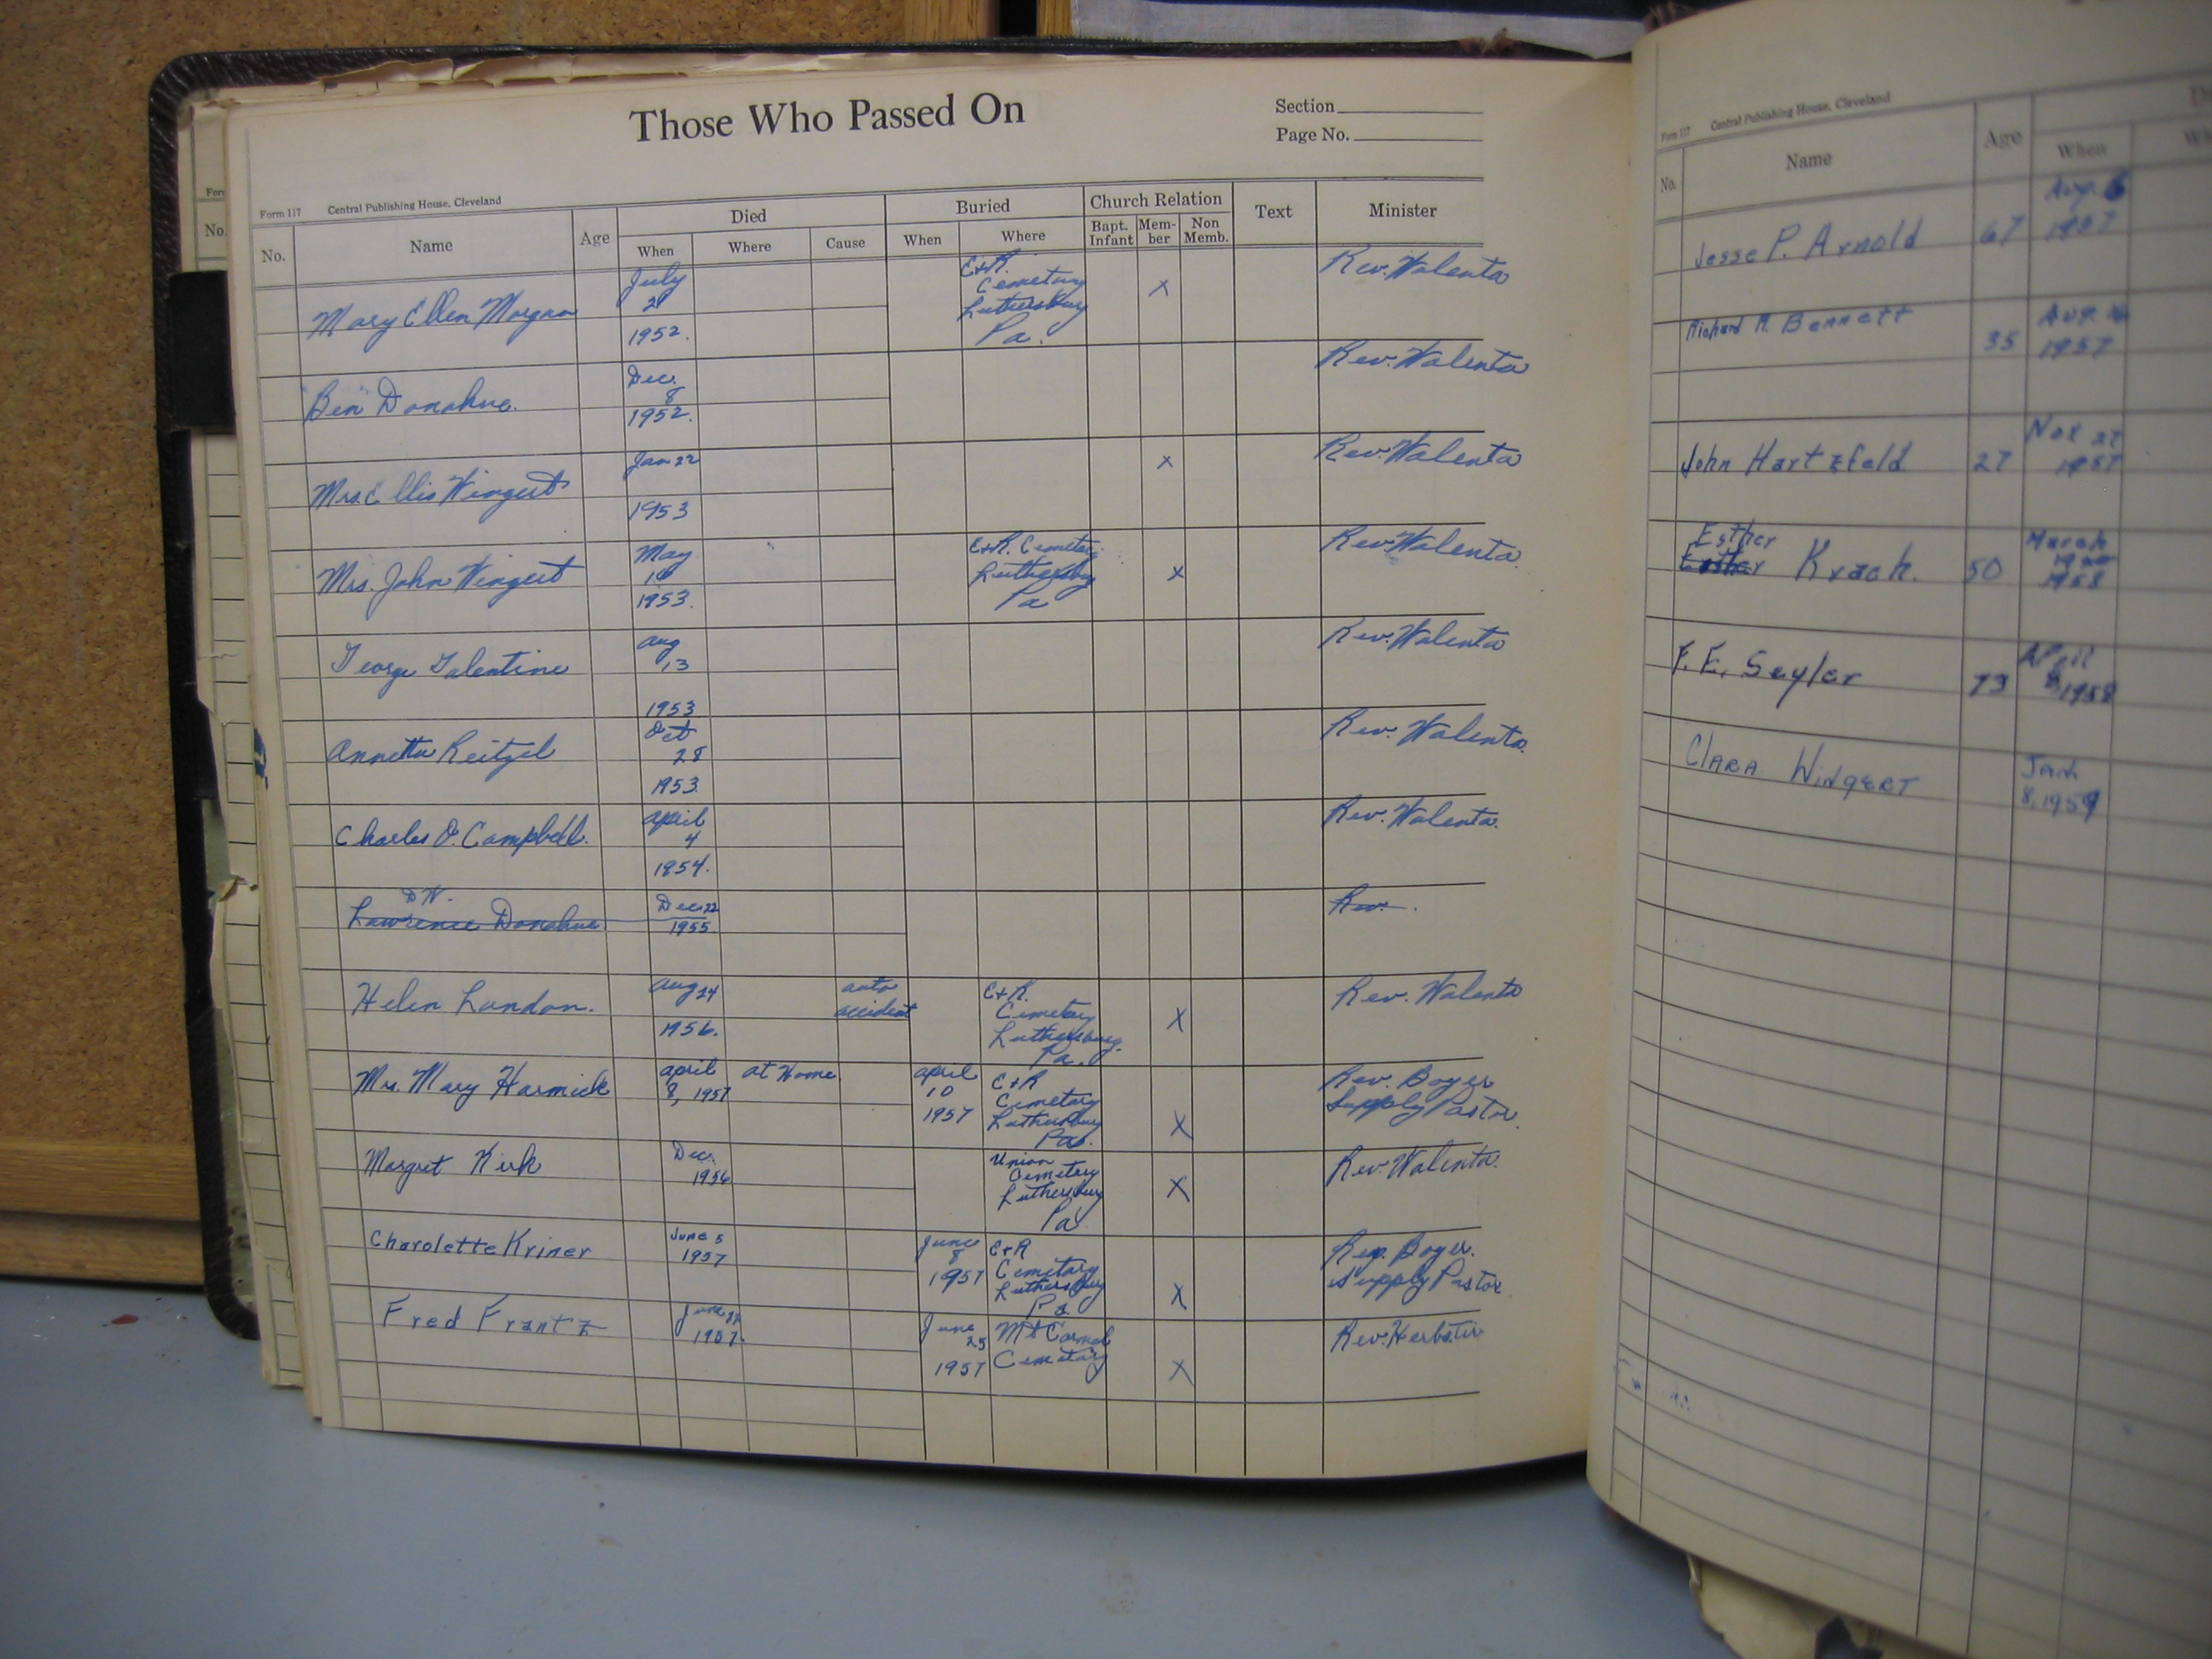 Those Who Passed On
Section
Page No.
Form 117 Central Publishing House, Cleveland
No. Name Age Died Buried Church Relation Text Minister
When Where Cause When Where Bapt. Infant Mem- ber Non Memb.
Mary Ellen Morgan July 21 1952. E+R. Cemetary Luthersburg Pa. X Rev. Walenta
Ben Donahue. Dec. 8 1952. Rev. Walenta
Mrs. Ellis Wingert Jan 22 1953 X Rev. Walenta
Mrs. John Wingert May 1953. E+R. Cemetary Luthersburg Pa X Rev. Walenta
George Talentine Aug 13 1953 Rev. Walenta
Annetta Reitzel Oct 28 1953. Rev. Walenta.
Charles O. Campbell. April 4 1954. Rev. Walenta.
D W.
Lawrence Donahue. Dec 22 1955 Rev.
Helen London. Aug 24 1956. auto accident E+R. Cemetary Luthersburg. Pa. X Rev. Walenta
Mrs. Mary Harmick April 8, 1957 at Home April 10 1957 E+R Cemetary Luthersburg Pa. X Rev. Boyer Supply Pastor.
Margret Kirk Dec. 1956 Union Cemetary Luthersburg Pa X Rev. Walenta.
Charolette Kriner June 5 1957 June 8 1957 E+R Cemetary Luthersburg Pa. X Rev. Boyer. Supply Pastor
Fred Frantz June 22 1957. June 25 1957 Mt Carmel Cemetary X Rev. Herbster
Form 117 Central Publishing House, Cleveland
No. Name Age When
Jesse P. Arnold 67 Aug. 6 1957
Richard M. Bennett 35 Aug. 1957
John Hartzfeld 27 Nov 27 1957
Esther
Krach. 50 March 1958
F. E. Seyler 73 April 8, 1958
Clara Wingert Jan 8, 1959